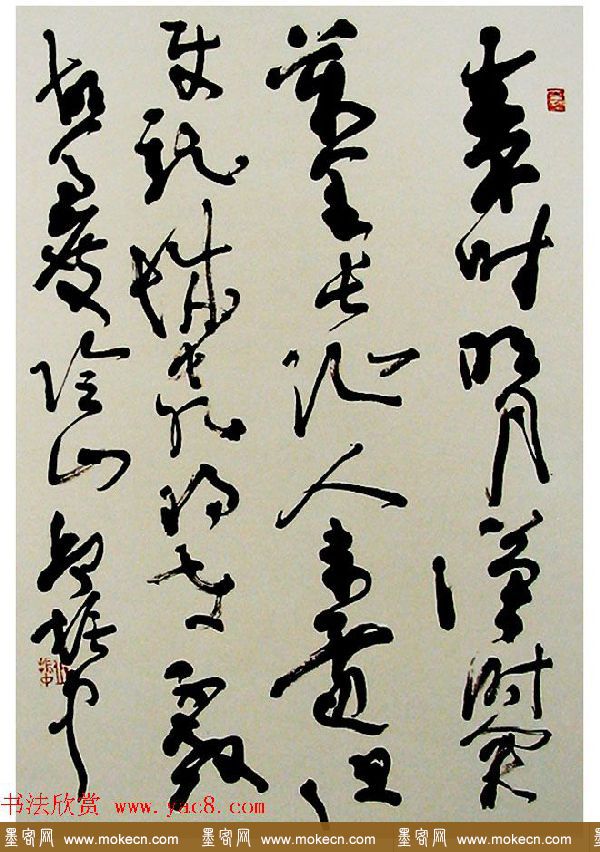 秦時明月漢時關
萬里長征人未還但
使龍城飛將在不教
胡馬度陰山 邱振中
书法欣赏 www.yac8.com
墨客网 www.mokecn.com 墨客网 www.mokecn.com 墨客网 www.mokecn.com